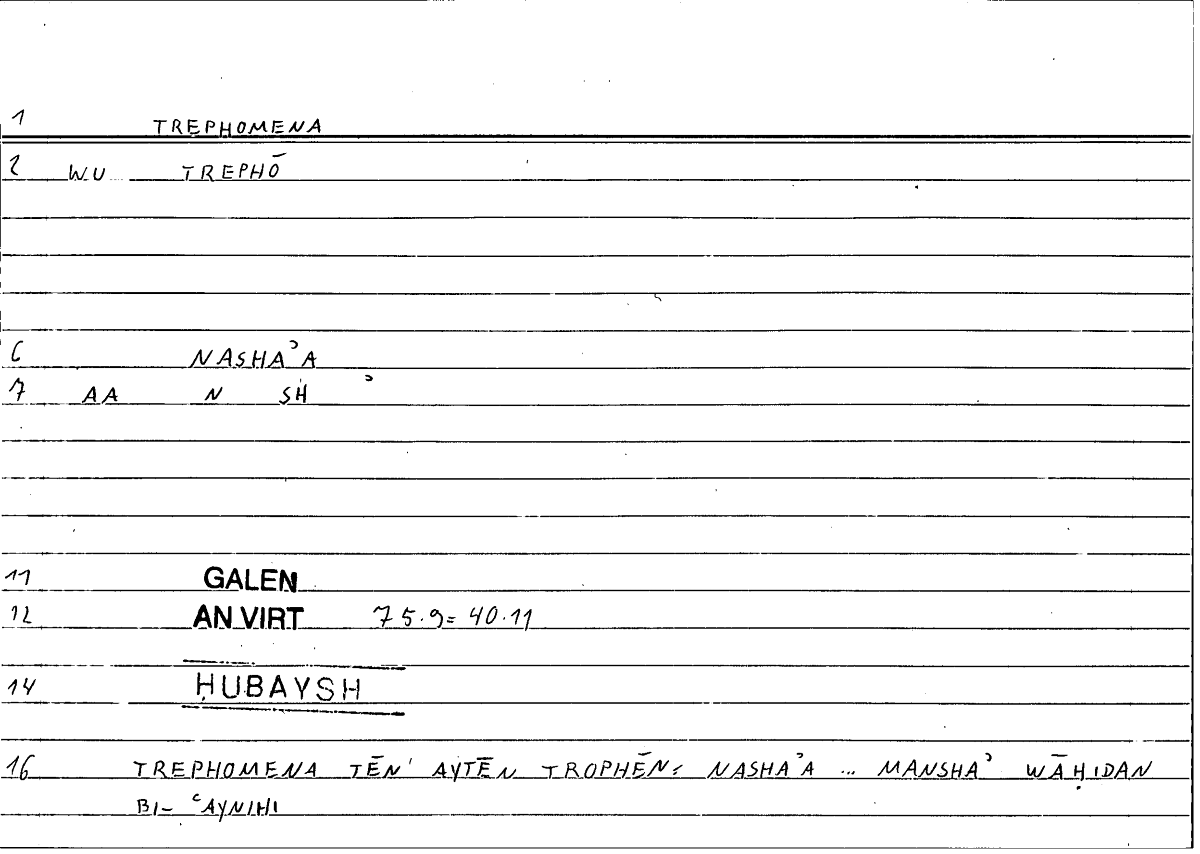 1 TREPHOMENA
2 WU TREPHŌ
6 NASHAʾA
7 AA N SH ʾ
11 GALEN
12 AN VIRT 75.9= 40.11
14 ḤUBAYSH
16 TREPHOMENA TĒN' AYTĒN TROPHĒN: NASHAʾA ... MANSHAʾ WĀḤIDAN
BI- ʿAYNIHI